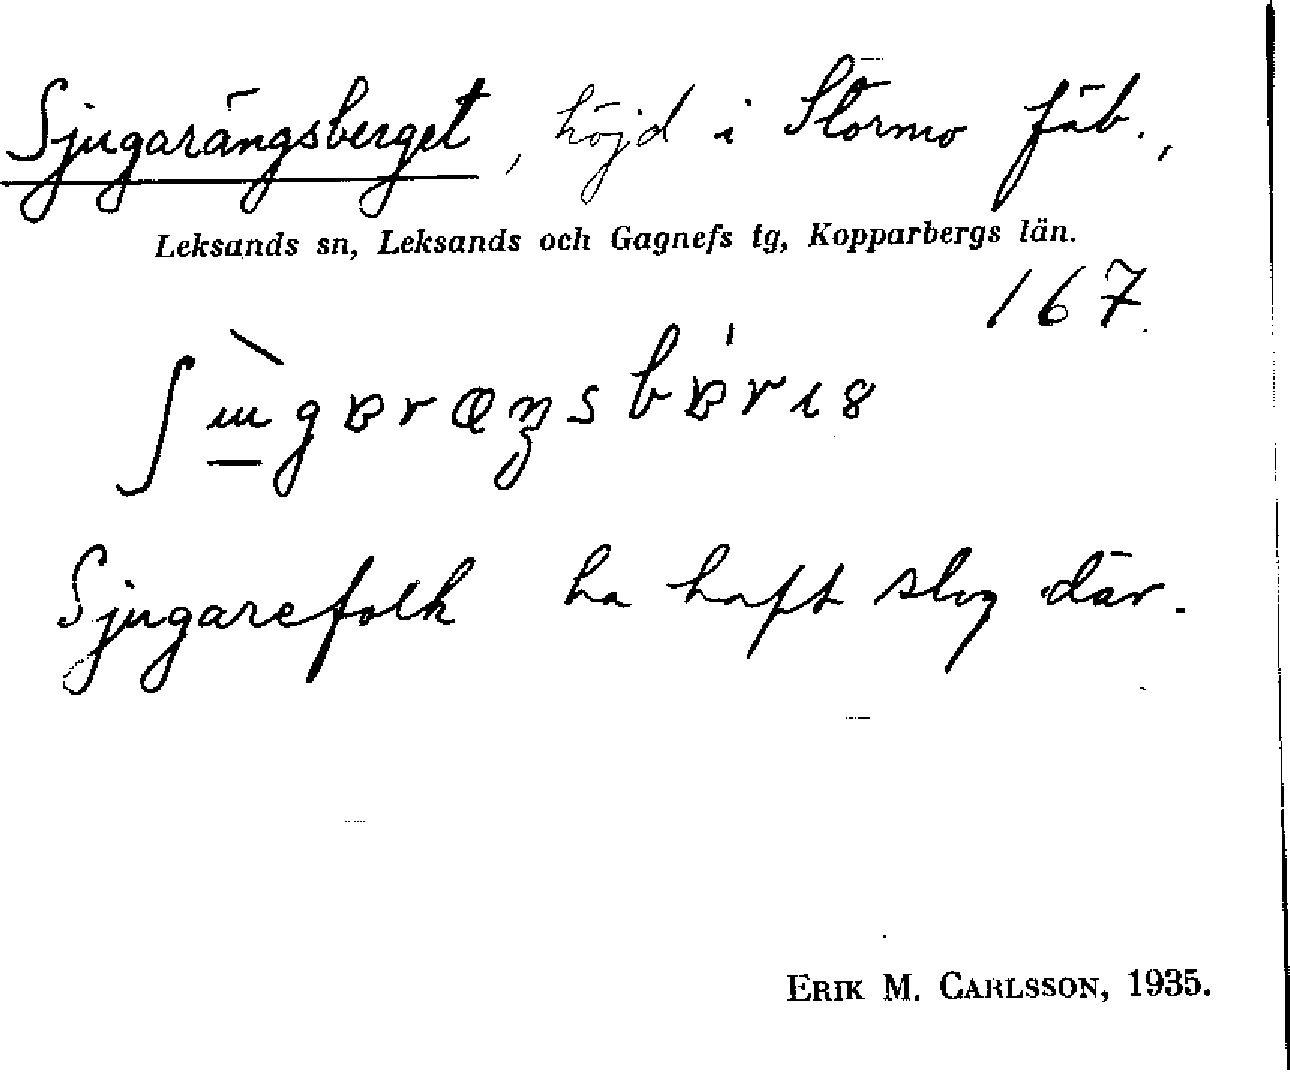 Sjugarängsberget, höjd i Stormo fäb.,
Leksands sn, Leksands och Gagnefs tg, Kopparbergs län.
167
Sjugarefolk ha haft slog där.
ERIK M. CARLSSON, 1935.